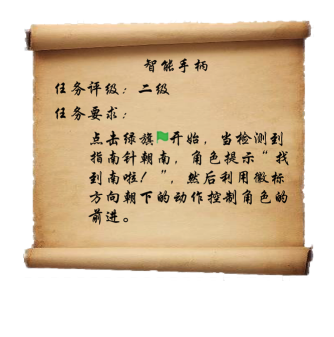 智能手柄
任务评级：二级
任务要求：
点击绿旗开始，当检测到
指南针朝南，角色提示“找
到南啦！”，然后利用徽标
方向朝下的动作控制角色的
前进。